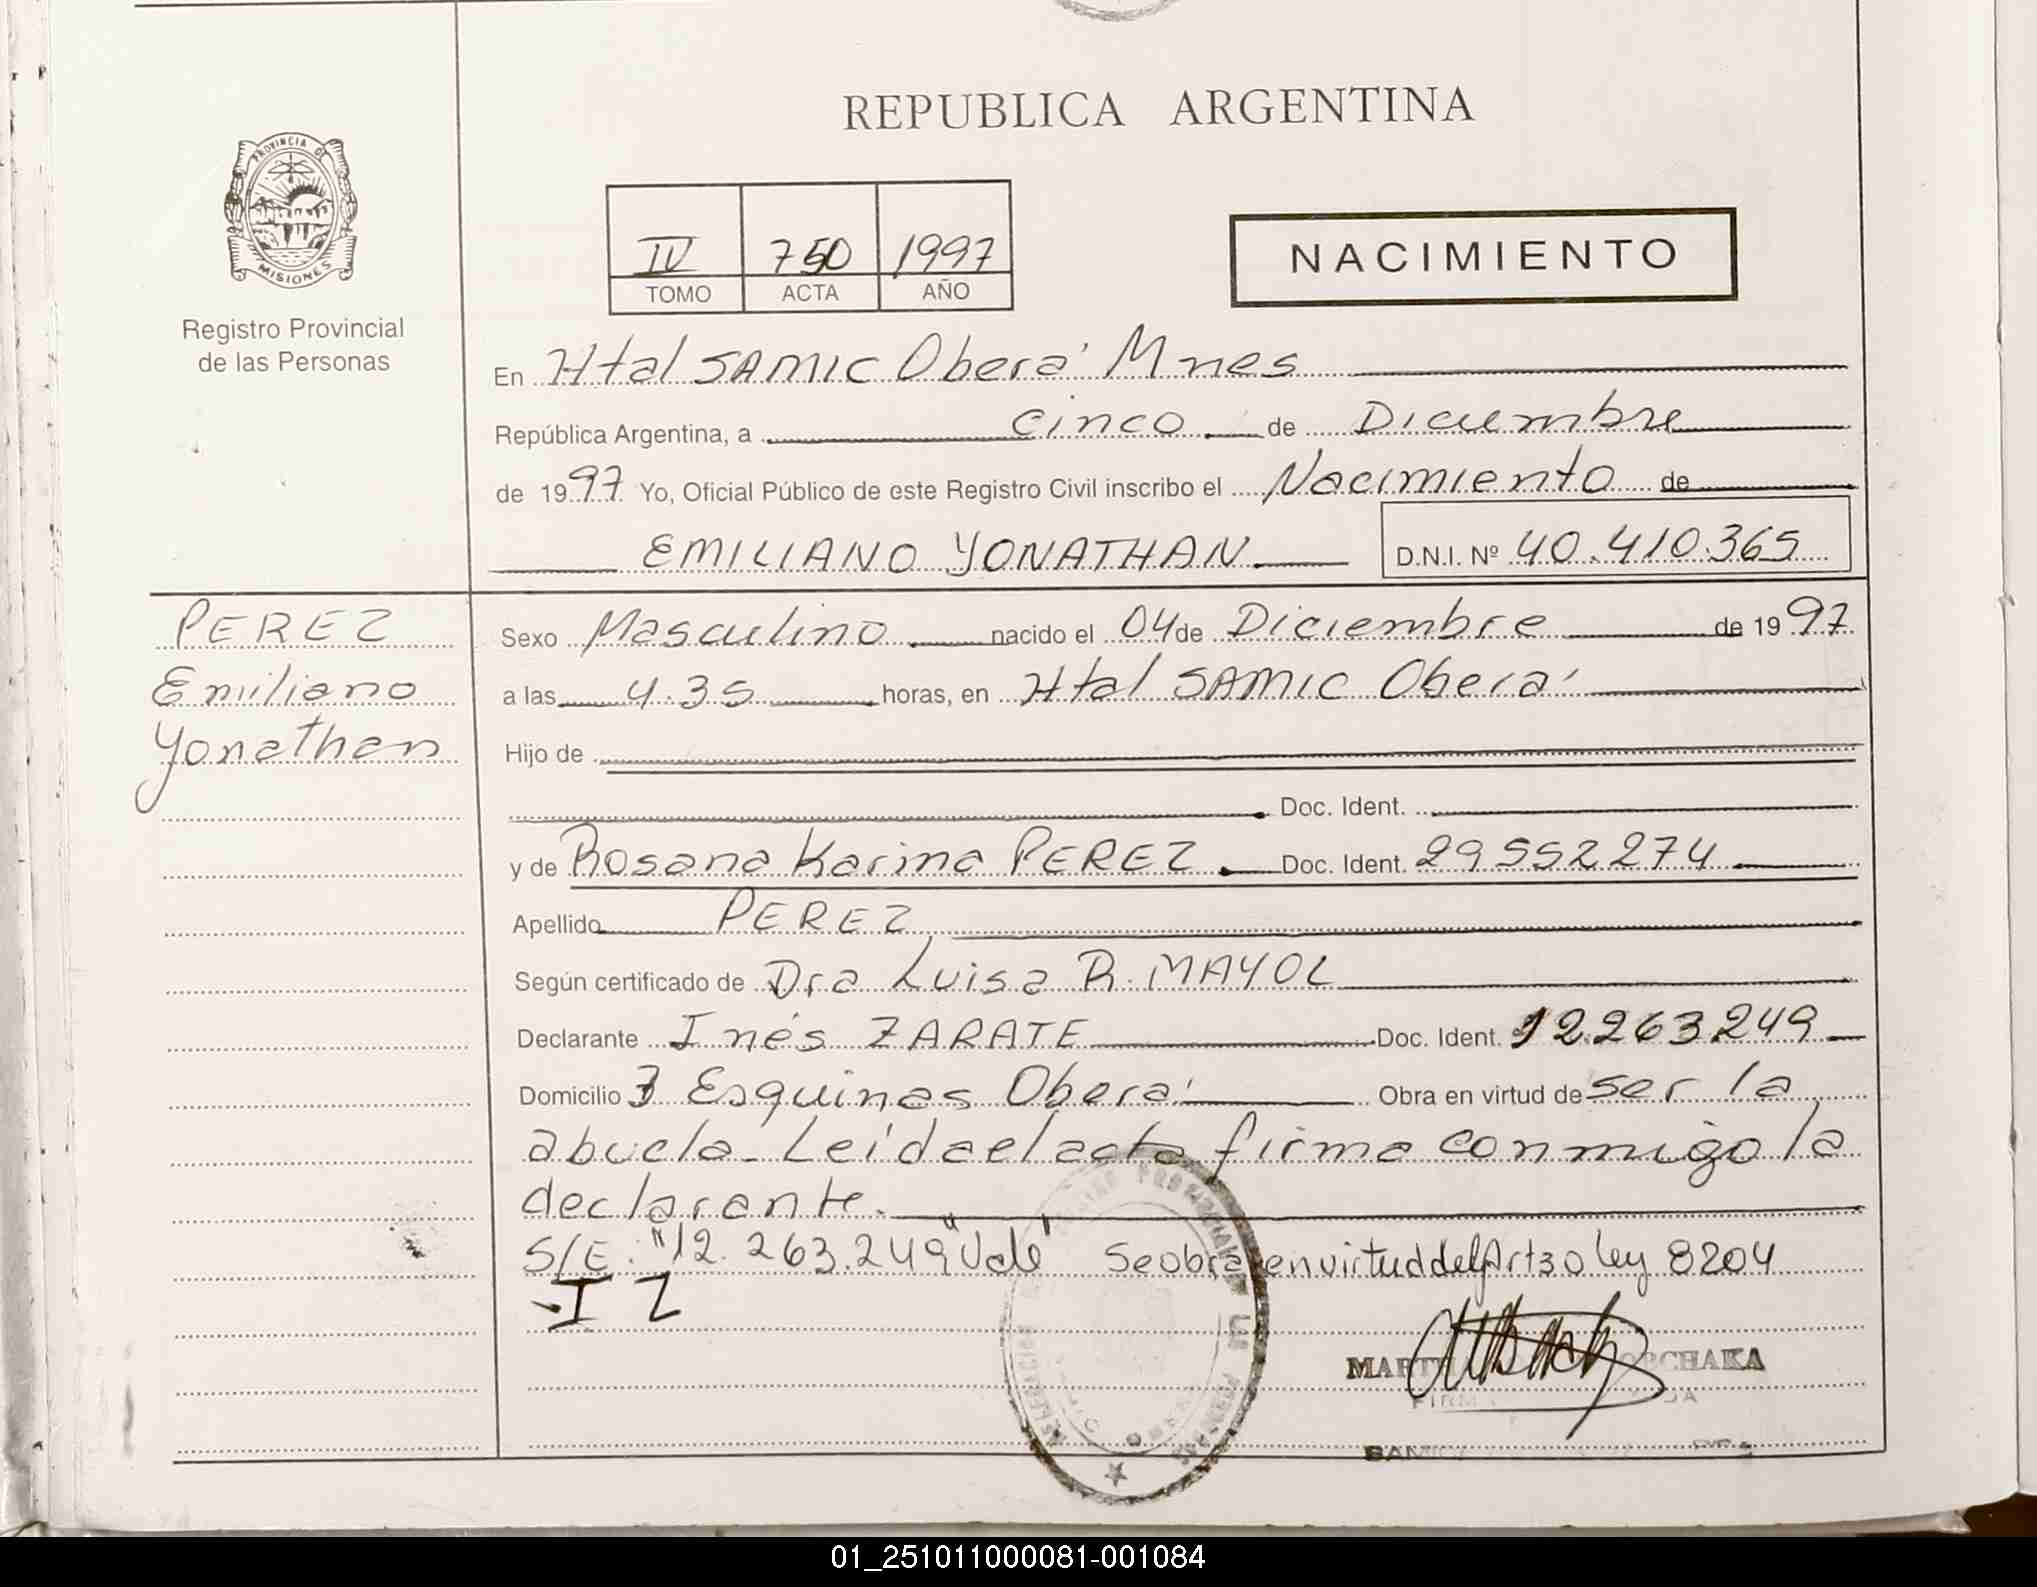 REPUBLICA ARGENTINA
PROVINCIA DE
MISIONES
Registro Provincial
de las Personas
IV 750 1997
TOMO ACTA AÑO
NACIMIENTO
En Htal SAMIC Oberá Mnes
República Argentina, a cinco de Diciembre
de 1997 Yo, Oficial Público de este Registro Civil inscribo el Nacimiento de
EMILIANO YONATHAN D.N.I. Nº 40.410.365
PEREZ
Emiliano
Yonathan
Sexo Masculino nacido el 04 de Diciembre de 1997
a las 4.35 horas, en Htal SAMIC Oberá
Hijo de
Doc. Ident.
y de Rosana Karina PEREZ Doc. Ident. 29552274
Apellido PEREZ
Según certificado de Dra Luisa R. MAYOL
Declarante Inés ZARATE Doc. Ident. 12.263.249
Domicilio 3 Esquinas Oberá Obra en virtud de ser la
abuela. Leída el acta firma conmigo la
declarante.
S/E: "12.263.249" Vale" Se obra en virtud del Art 30 ley 8204
I Z
01_251011000081-001084